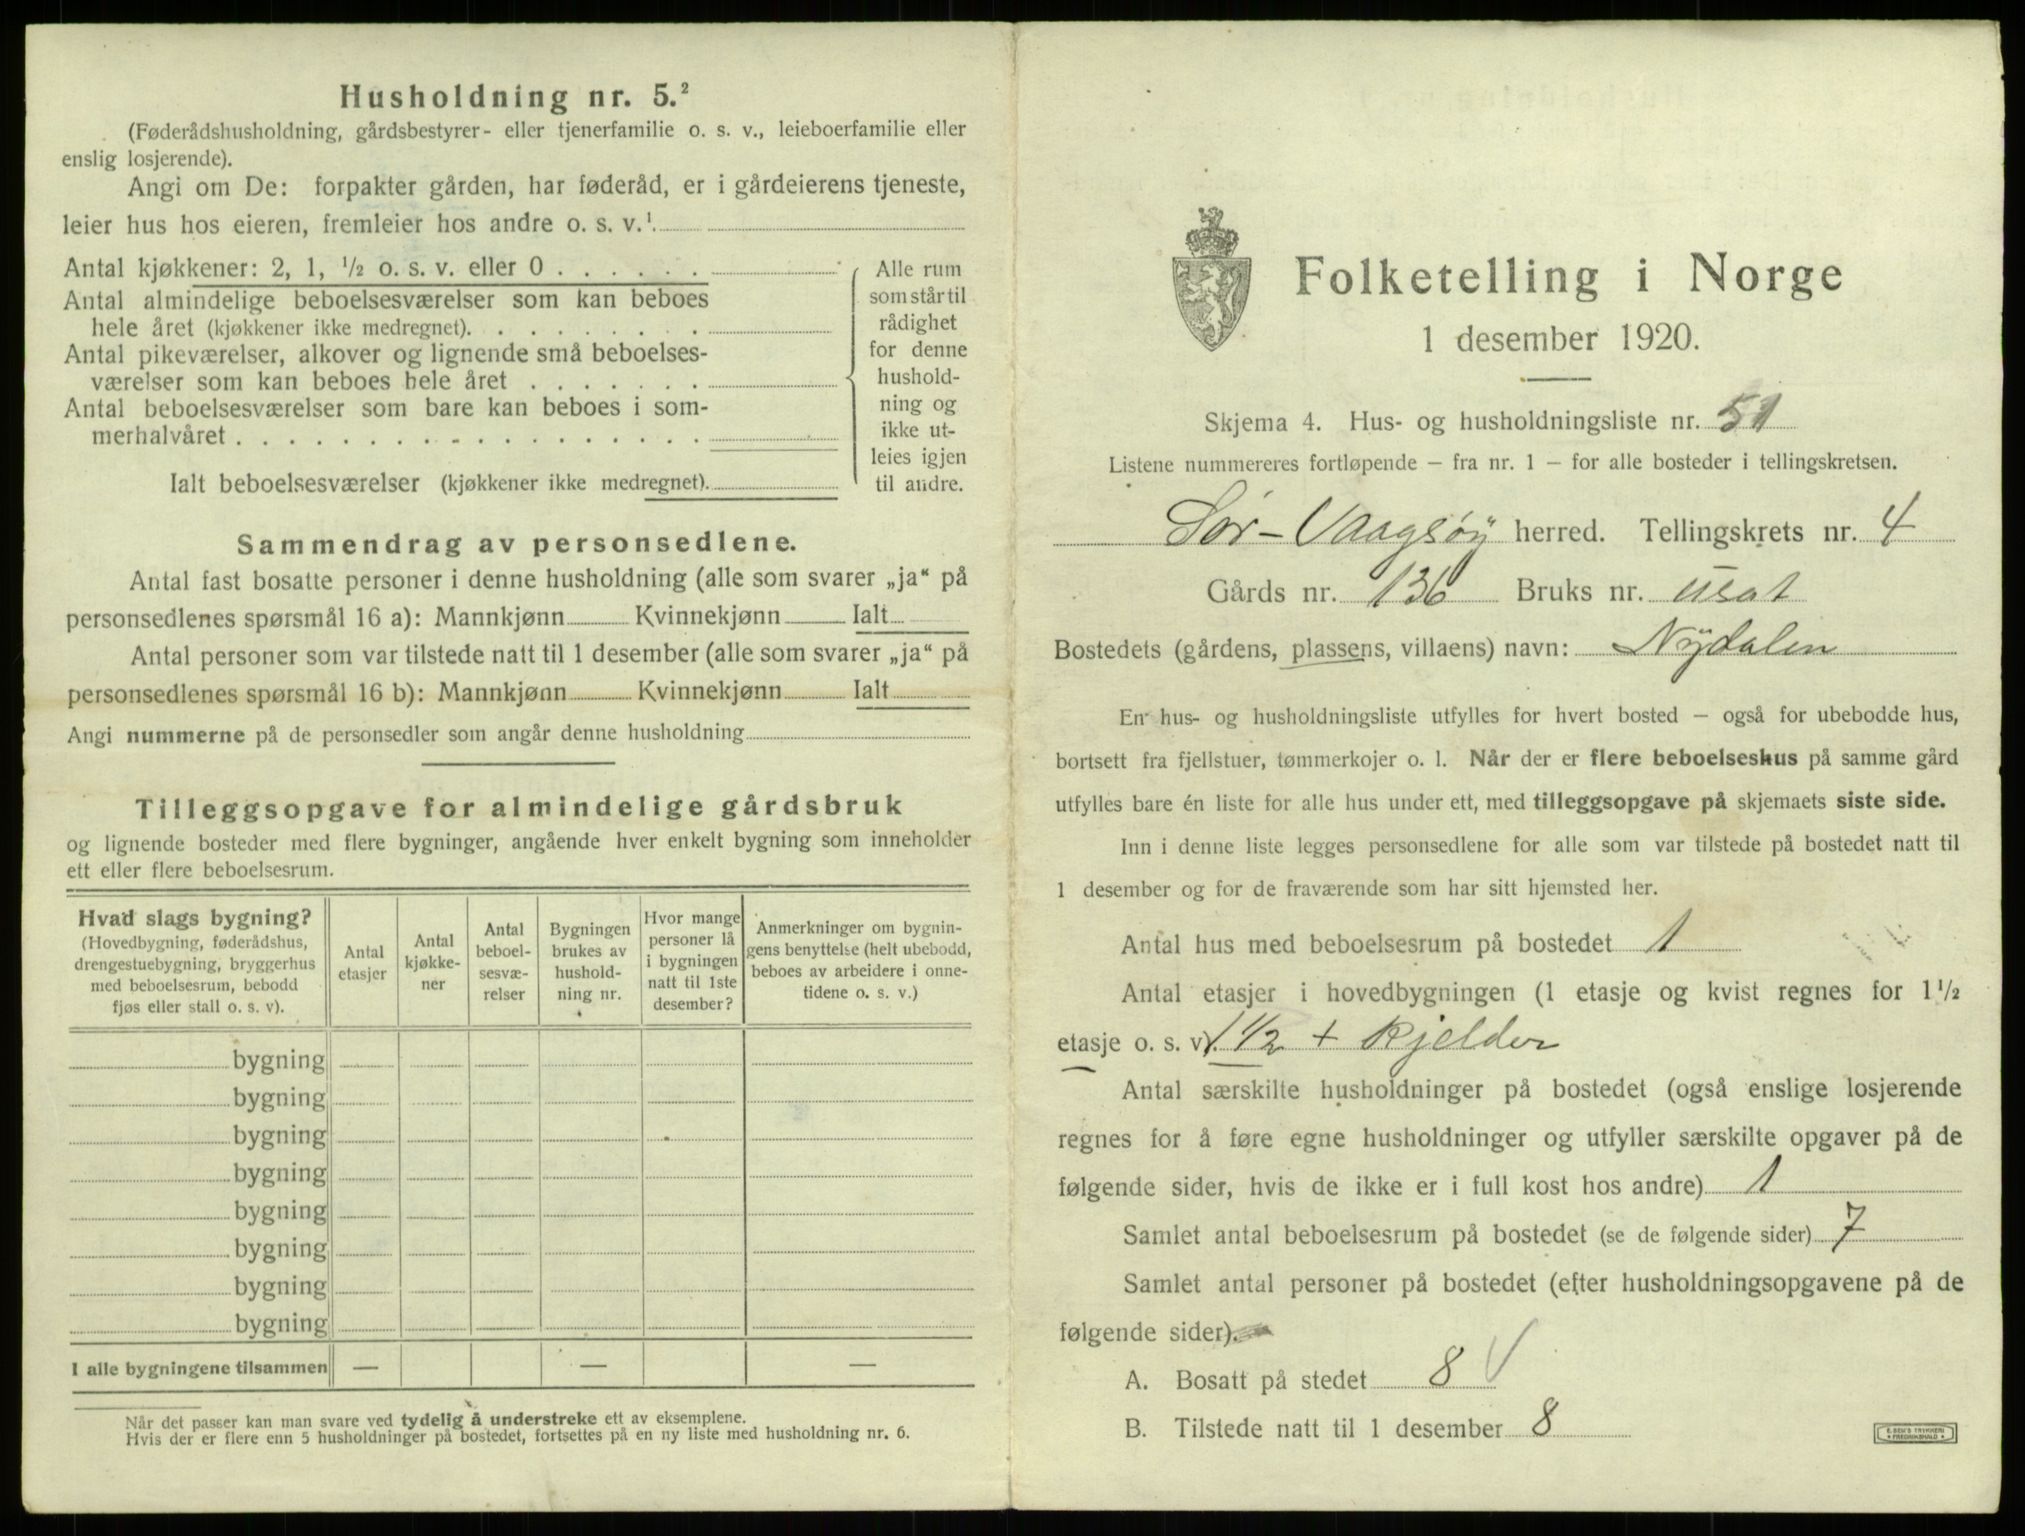 Husholdning nr. 5.²
(Føderådshusholdning, gårdsbestyrer- eller tjenerfamilie o. s. v., leieboerfamilie eller
enslig losjerende).
Angi om De: forpakter gården, har føderåd, er i gårdeierens tjeneste,
leier hus hos eieren, fremleier hos andre o. s. v.¹
Antal kjøkkener: 2, 1, ½ o. s. v. eller 0 . . . . . .
Antal almindelige beboelsesværelser som kan beboes
hele året (kjøkkener ikke medregnet). . . . . . . . .
Antal pikeværelser, alkover og lignende små beboelses-
værelser som kan beboes hele året . . . . . . .
Antal beboelsesværelser som bare kan beboes i som-
merhalvåret . . . . . . . . . . . . . . . . . .
Ialt beboelsesværelser (kjøkkener ikke medregnet).
Alle rum
som står til
rådighet
for denne
hushold-
ning og
ikke ut-
leies igjen
til andre.
Sammendrag av personsedlene.
Antal fast bosatte personer i denne husholdning (alle som svarer „ja“ på
personsedlenes spørsmål 16 a): Mannkjønn Kvinnekjønn Ialt
Antal personer som var tilstede natt til 1 desember (alle som svarer „ja“ på
personsedlenes spørsmål 16 b): Mannkjønn Kvinnekjønn Ialt
Angi nummerne på de personsedler som angår denne husholdning
Tilleggsopgave for almindelige gårdsbruk
og lignende bosteder med flere bygninger, angående hver enkelt bygning som inneholder
ett eller flere beboelsesrum.
Hvad slags bygning?
(Hovedbygning, føderådshus,
drengestuebygning, bryggerhus
med beboelsesrum, bebodd
fjøs eller stall o. s. v).
Antal
etasjer
Antal
kjøkke-
ner
Antal
beboel-
sesvæ-
relser
Bygningen
brukes av
hushold-
ning nr.
Hvor mange
personer lå
i bygningen
natt til 1ste
desember?
Anmerkninger om bygnin-
gens benyttelse (helt ubebodd,
beboes av arbeidere i onne-
tidene o. s. v.)
bygning
bygning
bygning
bygning
bygning
bygning
bygning
bygning
I alle bygningene tilsammen — — —
Når det passer kan man svare ved tydelig å understreke ett av eksemplene.
Hvis der er flere enn 5 husholdninger på bostedet, fortsettes på en ny liste med husholdning nr. 6.
Folketelling i Norge
1 desember 1920.
Skjema 4. Hus- og husholdningsliste nr. 51
Listene nummereres fortløpende – fra nr. 1 – for alle bosteder i tellingskretsen.
Sør-Vaagsøy herred. Tellingskrets nr. 4
Gårds nr. 136 Bruks nr. usat
Bostedets (gårdens, plassens, villaens) navn: Nydalen
En hus- og husholdningsliste utfylles for hvert bosted – også for ubebodde hus,
bortsett fra fjellstuer, tømmerkojer o. l. Når der er flere beboelseshus på samme gård
utfylles bare én liste for alle hus under ett, med tilleggsopgave på skjemaets siste side.
Inn i denne liste legges personsedlene for alle som var tilstede på bostedet natt til
1 desember og for de fraværende som har sitt hjemsted her.
Antal hus med beboelsesrum på bostedet 1
Antal etasjer i hovedbygningen (1 etasje og kvist regnes for 1½
etasje o. s. v). 1½ + kjelder
Antal særskilte husholdninger på bostedet (også enslige losjerende
regnes for å føre egne husholdninger og utfyller særskilte opgaver på de
følgende sider, hvis de ikke er i full kost hos andre) 1
Samlet antal beboelsesrum på bostedet (se de følgende sider) 7
Samlet antal personer på bostedet (efter husholdningsopgavene på de
følgende sider).
A. Bosatt på stedet 8
B. Tilstede natt til 1 desember 8